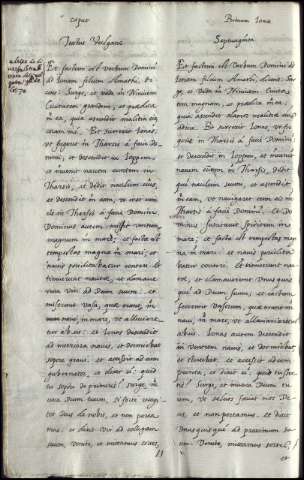 caput Primum Ionæ
Textus Vulgatæ
Et factum est Verbum Domini
ad Ionam filium Amathi, di-
cens: Surge, et vade in Niniven
Civitatem grandem, et prædica
in ea, quia ascendit malitia eius
coram me. Et surrexit Ionas,
ut fugeret in Tharsis à facie Do-
mini, et descendit in Ioppen,
et invenit navem euntem in
Tharsis, et dedit naulum eius,
et descendit in eam, ut iret cum
eis in Tharsis à facie Domini
Dominus autem misit ventum
magnum in mare; et facta est
tempestas magna in mari; et
navis periclitabatur conteri. Et
timuerunt nautæ, et clamave-
runt viri ad Deum suum; et
miserunt vasa, quæ erant in
navi, in mare, ut alleviaretur
ab eis: et Ionas descendit
ad interiora navis, et dormiebat
sopore gravi. et accessit ad eum
gubernator, et dixit ei: quid
tu sopore deprimeris? surge, in-
voca Deum tuum, si forte recogi-
tet Deus de nobis, et non perea-
mus. et dixit vir ad collegam
suum, venite, et mittamus sortes,
Septuaginta
Et factum est Verbum Domini
ad Ionam filium Amathi, dicens: Sur-
ge, et vade in Niniven Civita-
tem magnam, et prædica in ea,
quia ascendit clamor malitiæ eius
ad me. Et surrexit Ionas, ut fu-
geret in Tharsis à facie Domini
et descendit in Ioppen, et invenit
navem euntem in Tharsis, dedit-
que naulum suum, et ascendit
in eam, ut navigaret cum eis in
Tharsis à facie Domini. Et Do-
minus suscitavit Spiritum in
mare; et facta est tempestas magna
in mari: et navis periclita-
batur conteri. Et timuerunt nau-
tæ, et clamaverunt unusquis-
que ad Deum suum, et iactum
fecerunt vasorum, quæ erant in
navi, in mare, ut alleviarentur
ab eis. Ionas autem descendit
in ventrem navis, et dormiebat
et stertebat. et accessit ad eum
proreta, et dixit ei: quid tu ster-
tis? Surge, et invoca Deum tu-
um,
et non pereamus. et dixit
unusquisque ad proximum su-
um: Venite, mittamus sortes,
11